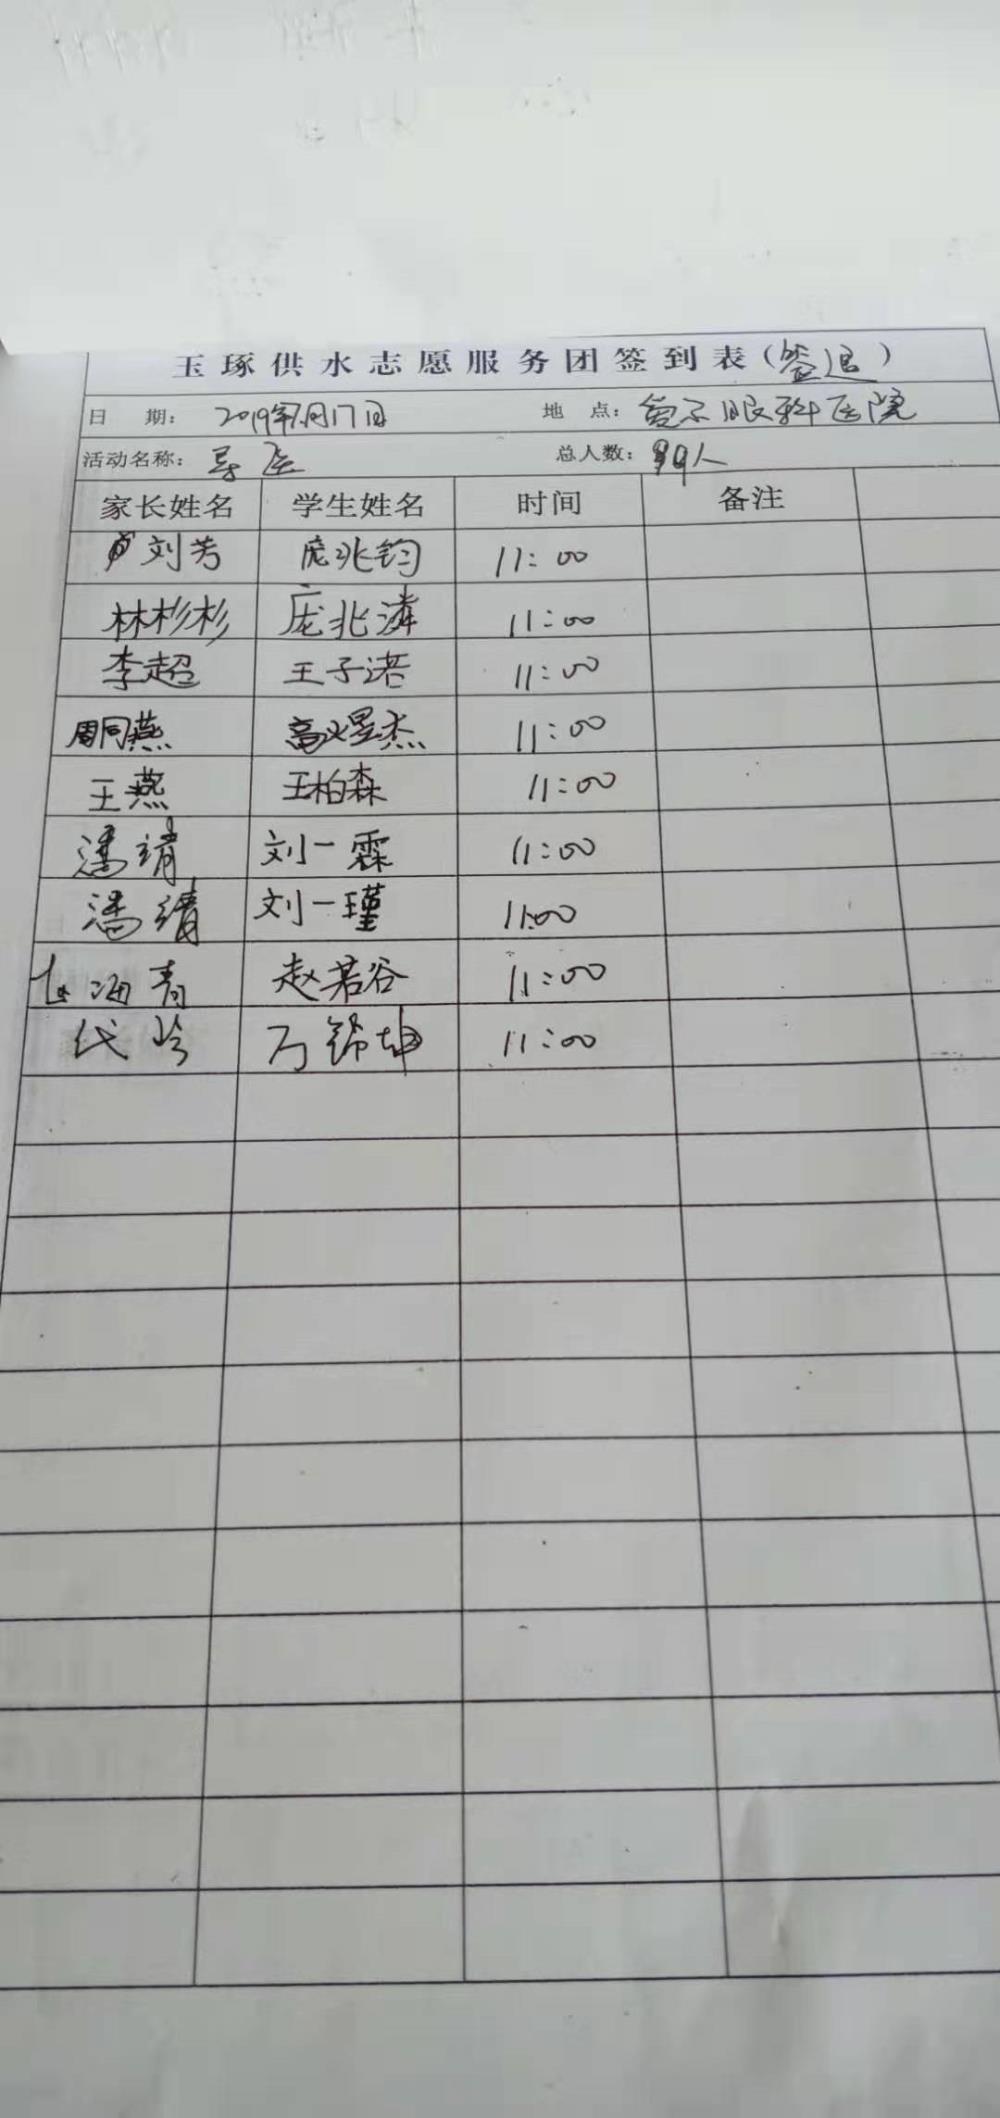 玉琢供水志愿服务团签到表(签退)
日 期: 2019年7月17日 地 点: 爱尔眼科医院
活动名称: 导医 总人数: 9人
家长姓名 学生姓名 时间 备注
刘芳 庞兆钧 11:00
林杉杉 庞兆潾 11:00
李超 王子诺 11:00
周同燕 高义星杰 11:00
王燕 王柏森 11:00
潘靖 刘一霖 11:00
潘靖 刘一瑾 11:00
海青 赵若谷 11:00
代玲 万锦坤 11:00